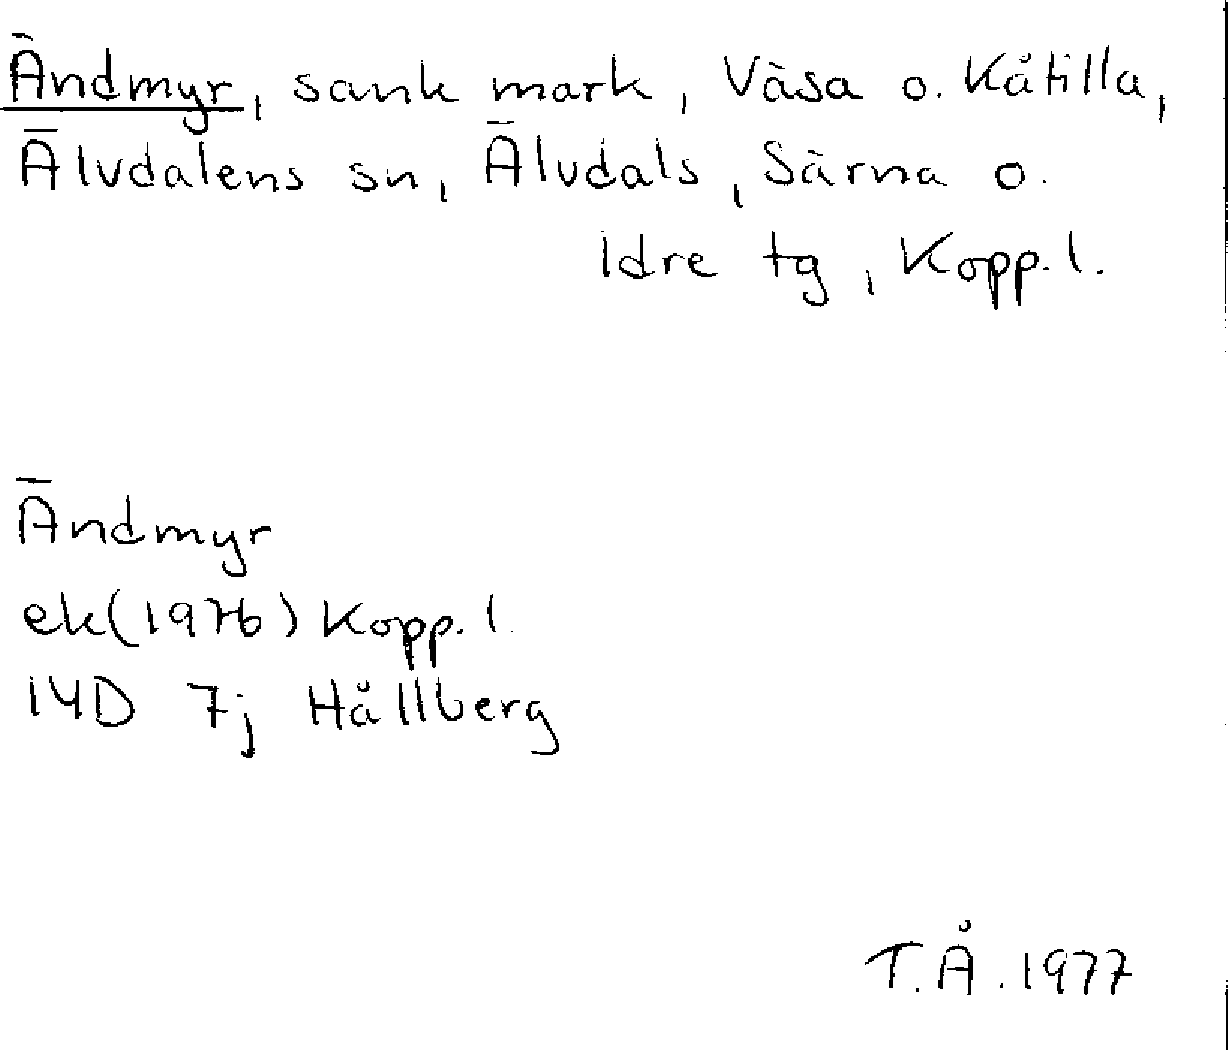 Ändmyr, sank mark, Väsa o. Kåtilla,
Älvdalens sn, Älvdals, Särna o.
Idre tg, Kopp. l.
Ändmyr
ek(1976) Kopp. l.
14D 7j Hållberg
T.Å. 1977